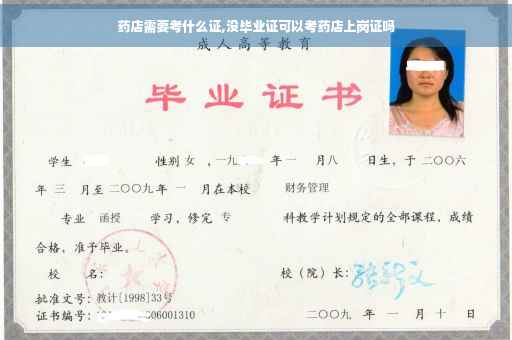 药店需要考什么证,没毕业证可以考药店上岗证吗
成人高等教育
毕业证书
学生 性别 女 ,一九 年 一 月八 日生，于 二〇〇六
年 三 月至 二〇〇九年 一 月在本校 财务管理
专业 函授 学习，修完 专 科教学计划规定的全部课程，成绩
合格，准予毕业。
校 名： 校（院）长：
批准文号：教计[1998]33号
证书编号： 06001310 二〇〇九 年 一 月 十 日